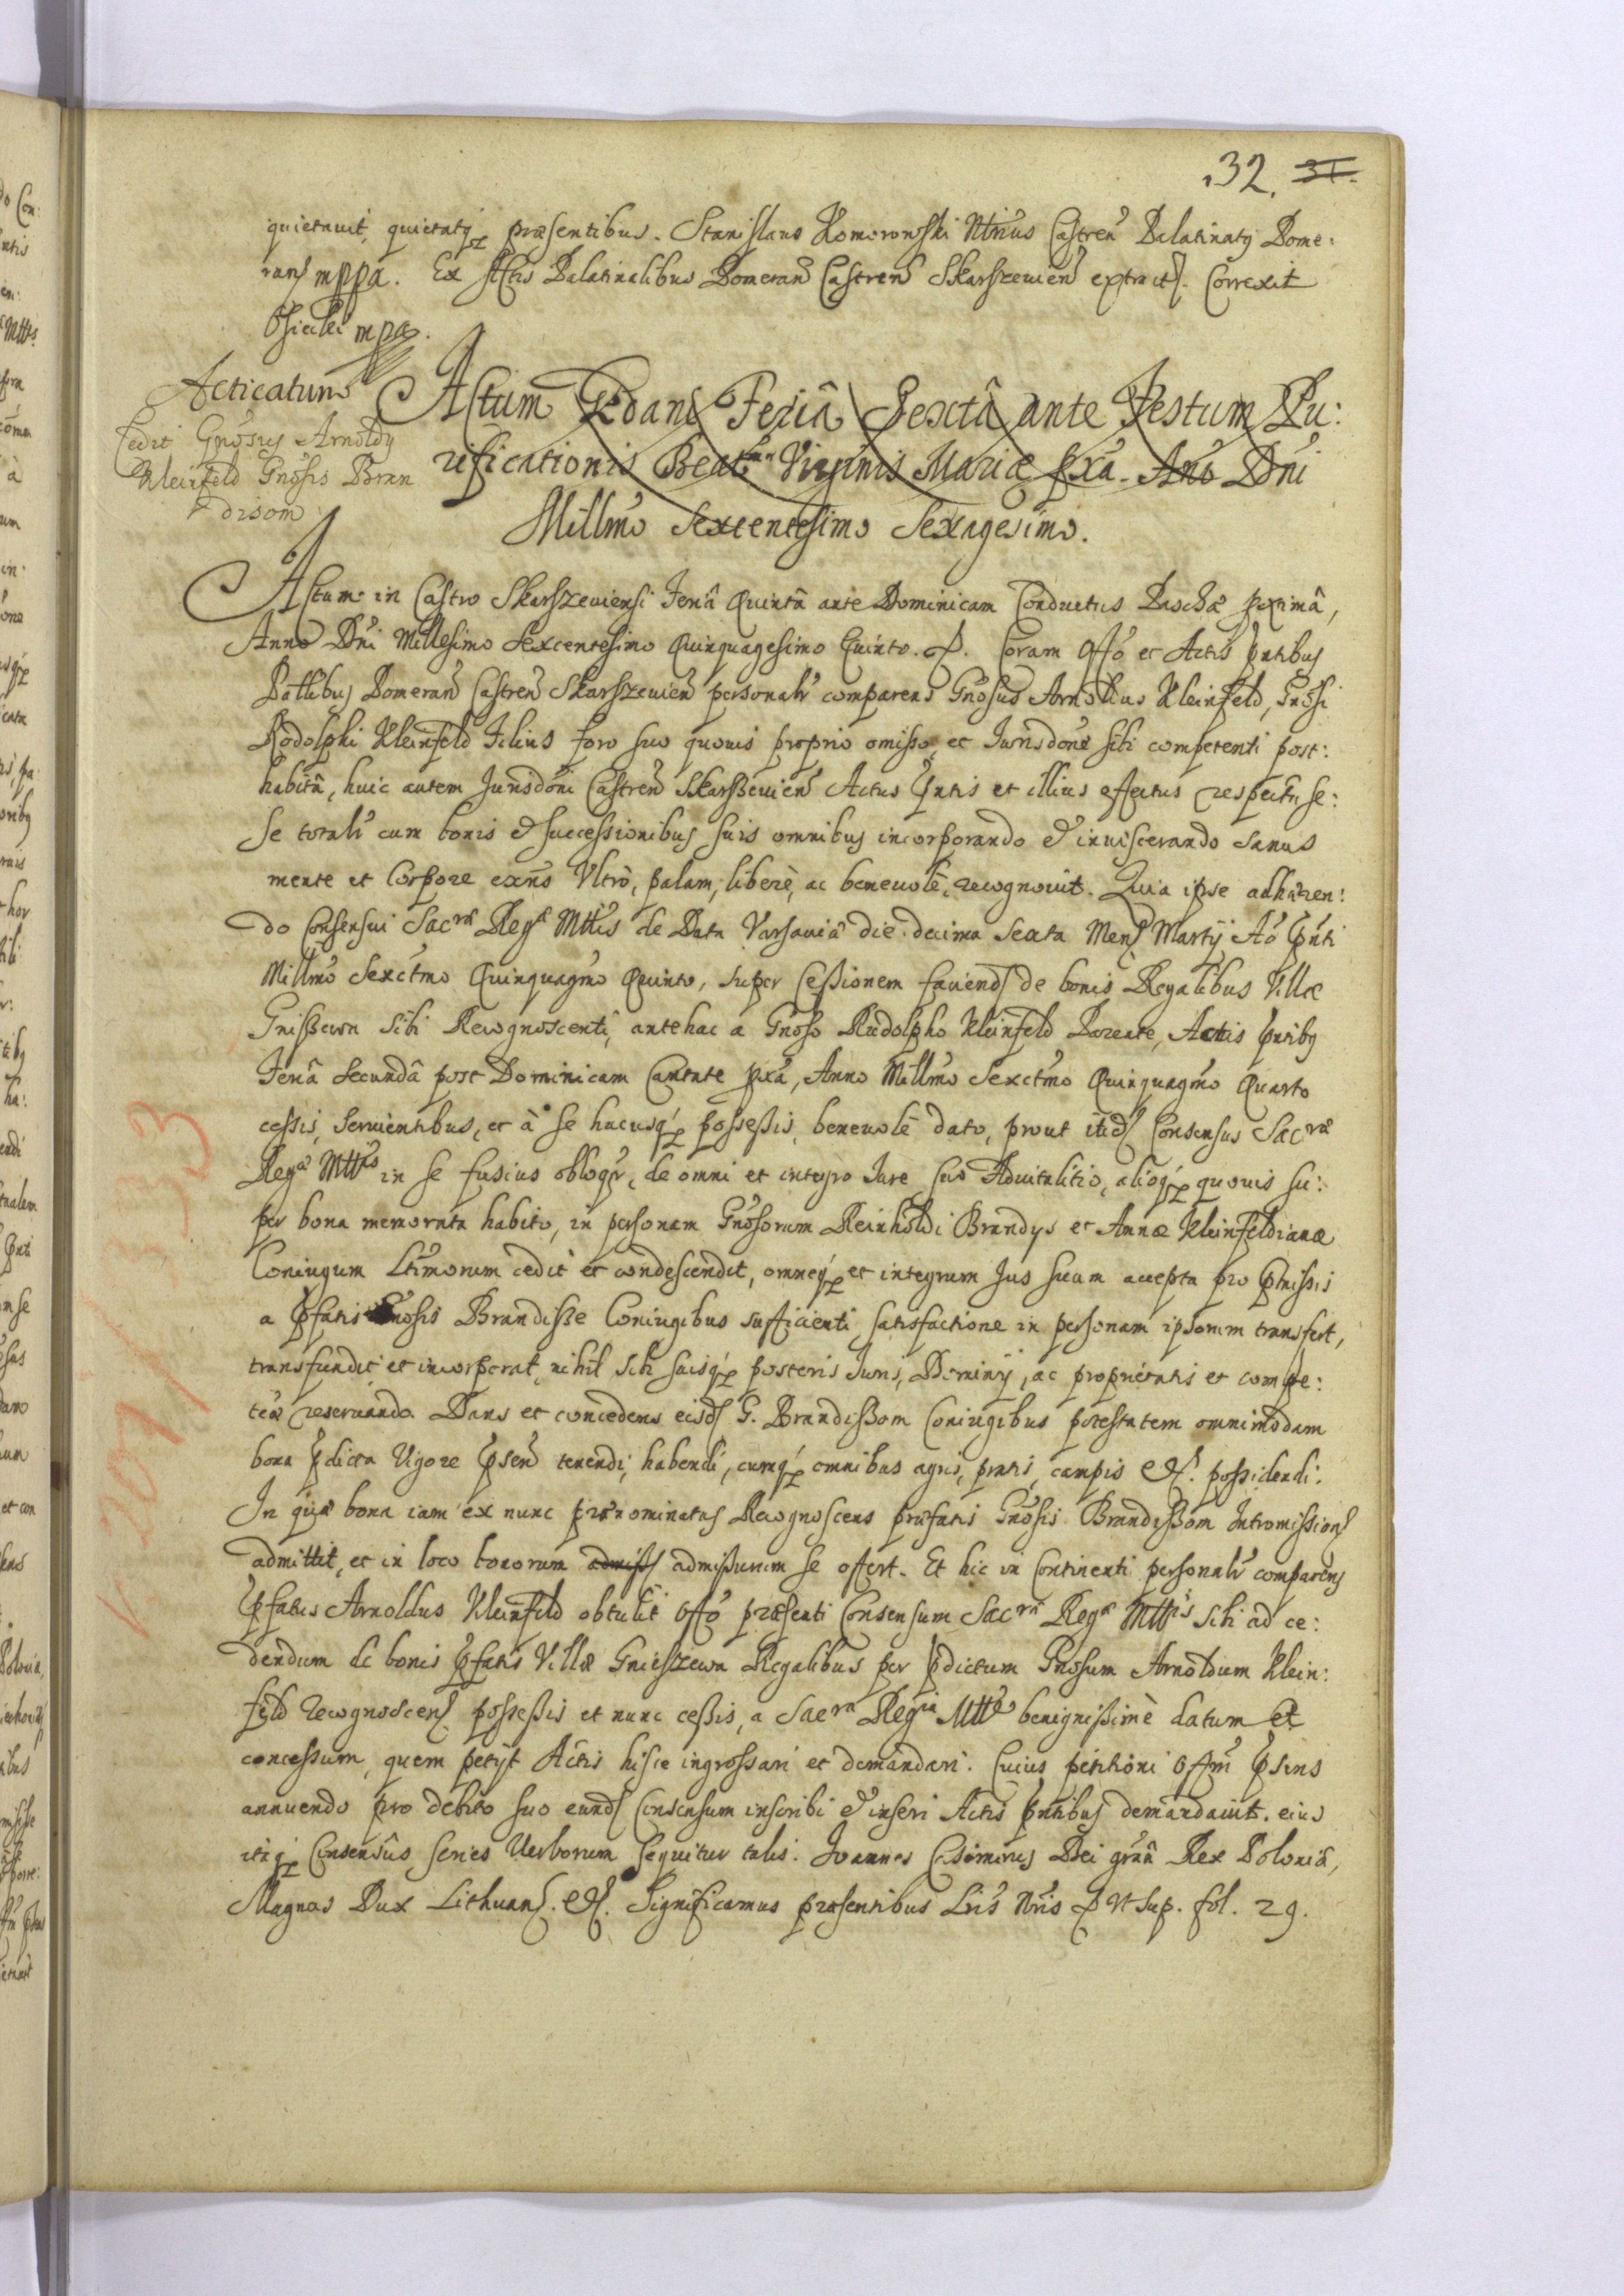 32. 31.
quietauit, quietatq præsentibus. Stanislaus Komorowski Ntrius Castren Palatinatq Pome:
ran mppa. Ex Actis Palatinalibus Pomeran Castren Skarszewien extract. Correxit
Osiecki mpa.
Acticatum
Cedit Gnosus Arnoldq
Kleinfeld Gnosis Bran
disom
Actum Gedani Feriâ Sextâ ante Festum Pu:
rificationis Beatmæ Virginis Mariæ pxa. Ano Dni
Millmo Sexcentesimo Sexagesimo.
Actum in Castro Skarszeuiensi Feriâ Quintâ ante Dominicam Conductus Paschæ proximâ,
Anno Dni Millesimo Sexcentesimo Quinquagesimo Quinto. Coram Offo et Actis pntibus
Pallibus Pomeran Castren Skarszeuien personalr comparens Gnosus Arnoldus Kleinfeld, Gnosi
Rodolphi Kleinfeld Filius foro suo quouis proprio omisso, et Jurisdone sibi competenti post:
habitâ, huic autem Jurisdoni Castren Skarszeuien Actus pntis et illius effectus respectu se:
se totalr cum bonis et successionibus suis omnibus incorporando et inuiscerando sanus
mente et Corpore exñs Vltrò, palam, liberè, ac beneuolè, recognouit. Quia ipse adhæren:
do Consensui Sacræ Regæ Mttis de Data Varsauiæ die decima Sexta Mens Martij Aõ pnti
Millmo Sexctmo Quinquagmo Quinto, super Cessionem faciend de bonis Regalibus Villæ
Gniszewa Sibi Recognoscenti, antehac a Gnoso Rudolpho Kleinfeld Parente, Actis pntibq
Feriâ Secundâ post Dominicam Cantate pxâ, Anno Millmo Sexctmo Quinquagmo Quarto
cessis, seruientibus, et à se hucusq possessis, beneuolè dato, prout itid Consensus Sacræ
Regæ Mttis in se fusius obloqr, de omni et integro Jure suo Aduitalitio, alioq quouis su:
per bona memorata habito, in personam Gnosorum Reinholdi Brandys et Annæ Kleinfeldianæ
Coniugum Ltimorum cedit et condescendit, omneq et integrum Jus suum accepta pro pmissis
a pfatis Gnosis Brandisse Coniugibus sufficienti satisfactione in personam ipsorum transfert,
transfundit et incorporat, nihil sibi suisq posteris Juris, Dominij, ac proprietatis et compe:
teæ reseruando. Dans et concedens eisd G. Brandissom Coniugibus potestatem omnimodam
bona pdicta Vigore psen tenendi, habendi, cumq omnibus agris, pratis, campis etc. possidendi.
In quæ bona iam ex nunc prænominatus Recognoscens præfatis Gnosis Brandissom Intromission
admittit, et in loco bonorum admiss admissurum se offert. Et hic in Continenti personalr comparens
pfatus Arnoldus Kleinfeld obtulit Offo præsenti Consensum Sacræ Regæ Mttis sibi ad ce:
dendum de bonis pfatis Villæ Gnieszewa Regalibus per pdictum Gnosum Arnoldum Klein:
feld recognoscen possessis et nunc cessis, a Sacra Regia Mtte benignissimè datum et
concessum, quem petijt Actis hisce ingrossari et demandari. Cuius petitioni Offm psens
annuendo pro debito suo eund Consensum inscribi et inseri Actis pntibus demandauit. eius
itaq Consensûs series Verborum sequitur talis. Joannes Casimirus Dei grâ Rex Poloniæ,
Magnus Dux Lithuan. etc. Significamus præsentibus Lris Nris Vt sup. fol. 29.